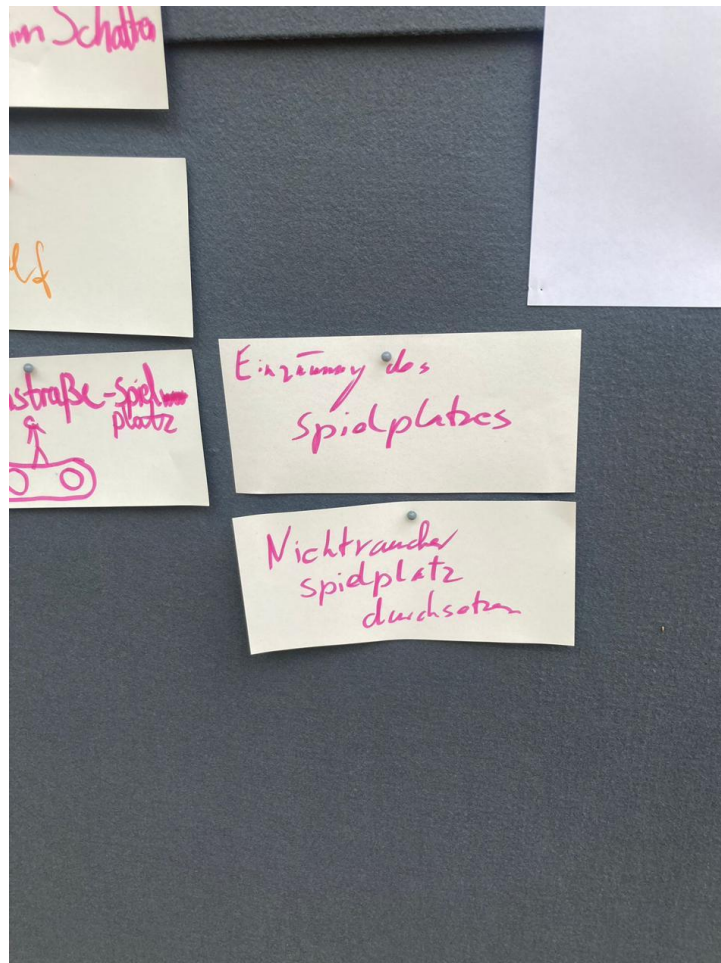 im Schatten
straße-Spiel
platz
Einzäunung des
Spielplatzes
Nichtraucher
spielplatz
durchsetzen